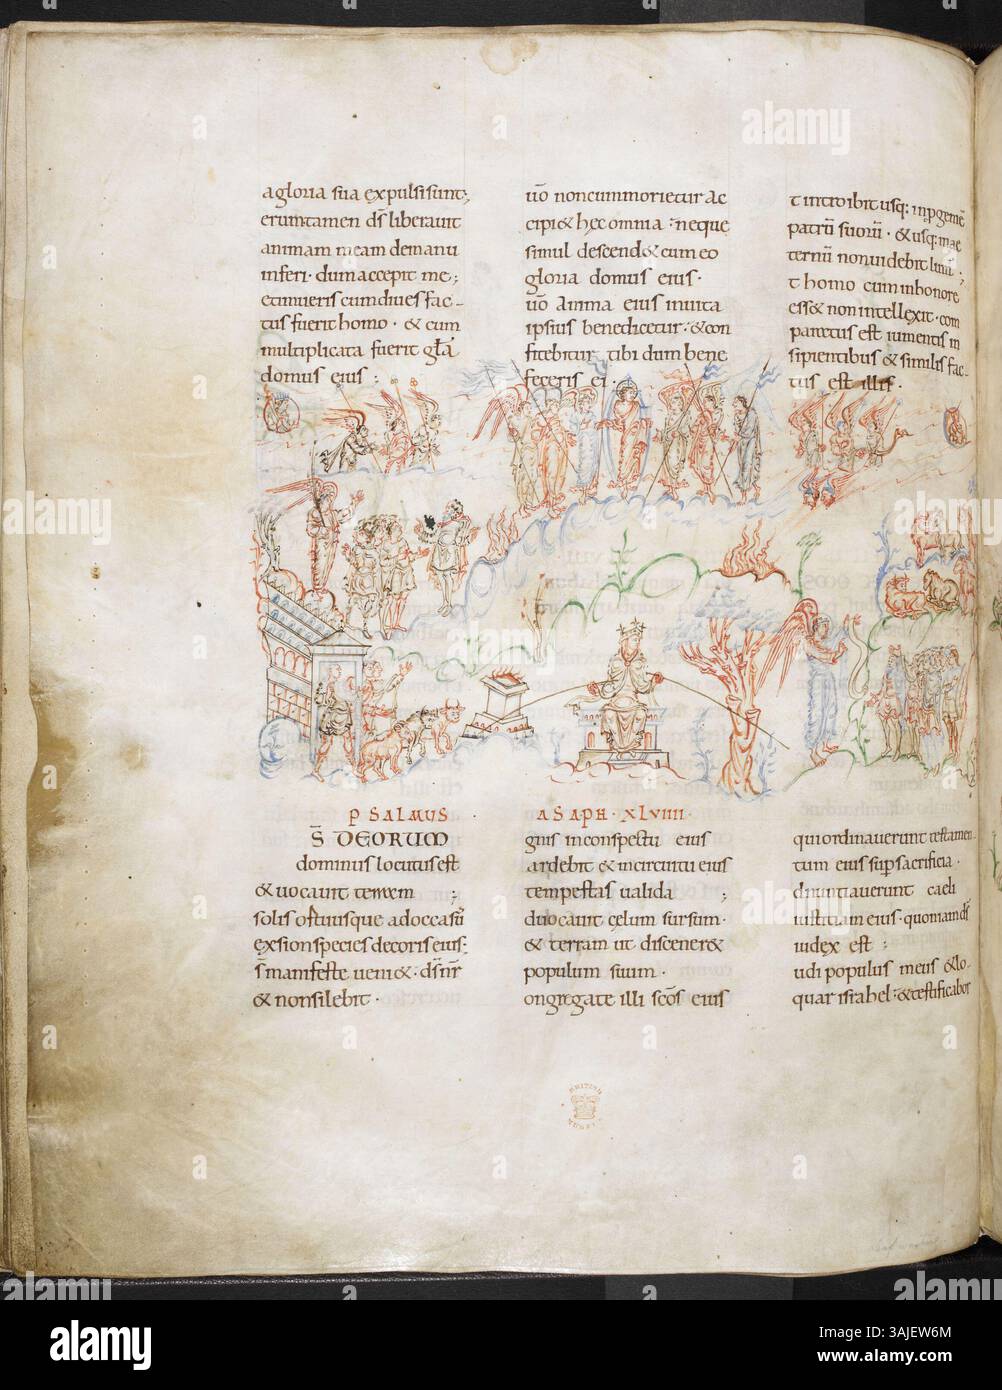 a gloria sua expulsi sunt;
erumtamen ds liberauit
animam meam demanu
inferi· dumaccepit me;
etimueris cumdiues fac-
tus fuerit homo· & cum
multiplicata fuerit gła
domus eius:
uō noncummorietur ac
cipi& hęc omnia: neque
simul descend& cum eo
gloria domus eius·
uō anima eius inuita
ipsius benedicetur: & con
fitebitur tibi dum bene
feceris ei·
t introibit usq: inpgeniē
patrū suorū· & usq: in ae
ternū nonuidebit lumē;
t homo cum inhonore
ess& non intellexit· com
paratus est iumentis in
sipientibus & similis fac-
tus est illis·
PSALMUS
S̄ DEORUM
dominus locutus est
& uocauit terram;
solis ortu usque adoccasū
exsion species decoris eius:
s̄ manifeste ueni&· dsnr̄
& nonsilebit·
ASAPH· XLVIIII·
gnis inconspectu eius
ardebit & incircuitu eius
tempestas ualida;
duocauit cęlum sursum·
& terram ut discerner&
populum suum·
ongregate illi scōs eius
qui ordinauerunt testamen-
tum eius sup sacrificia·
dnuntiauerunt caeli
iustitiam eius· quoniam ds̄
iudex est:
udi populus meus & lo-
quar israhel: & testificabor
BRITISH
MUSEUM
alamy
alamy
Image ID: 3AJEW6M
www.alamy.com